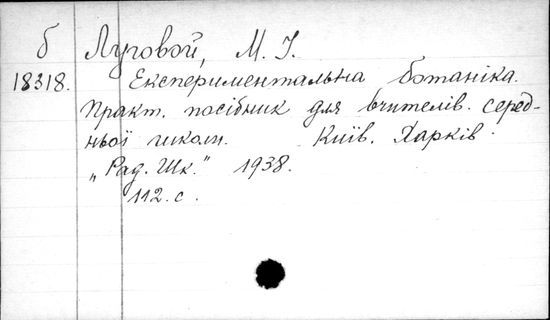 б Луговой, М. І.
18318. Експериментальна ботаніка.
Практ. посібник для вчителів серед-
ньої школи. Київ. Харків.
„Рад. Шк." 1938.
112. с.